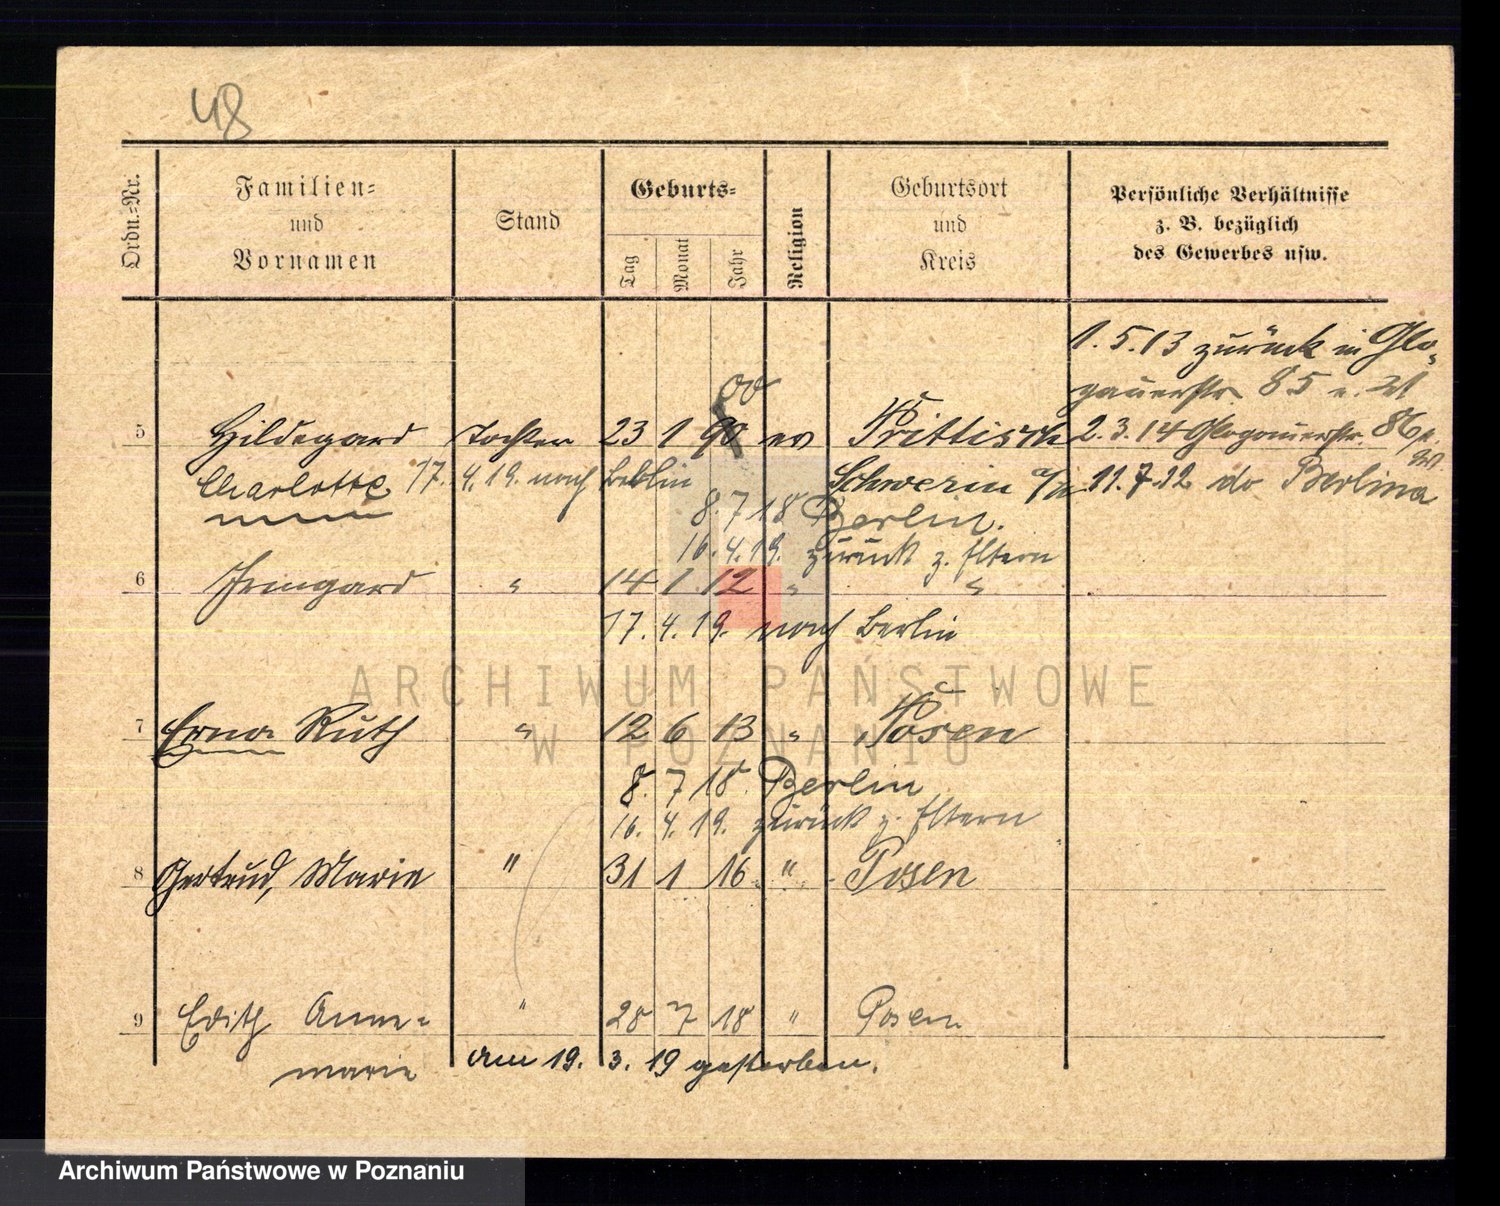 48
Ordn.-Nr.
Familien-
und
Vornamen
Stand
Geburts-
Tag
Monat
Jahr
Religion
Geburtsort
und
Kreis
Persönliche Verhältnisse
z. B. bezüglich
des Gewerbes usw.
1. 5. 13 zurück in Glo-
gauerstr. 85
00
5 Hildegard Tochter 23 1 90 ev Prittisch 2. 3. 14 Glogauerstr. 86
Charlotte 17. 4. 19. nach Berlin Schwerin a/W 11. 7. 12 do Berlin
8. 7 18 Berlin.
16. 4. 19. zurück z. Eltern
6 Irmgard " 14 1 12 " "
17. 4. 19. nach Berlin
ARCHIWUM PAŃSTWOWE
W POZNANIU
7 Erna Ruth " 12 6 13 " Posen
8. 7 18. Berlin
16. 4. 19. zurück z. Eltern
8 Gertrud, Marie " 31 1 16 " Posen
9 Edith Anne- " 28 7 18 " Posen
marie am 19. 3. 19 gestorben.
Archiwum Państwowe w Poznaniu